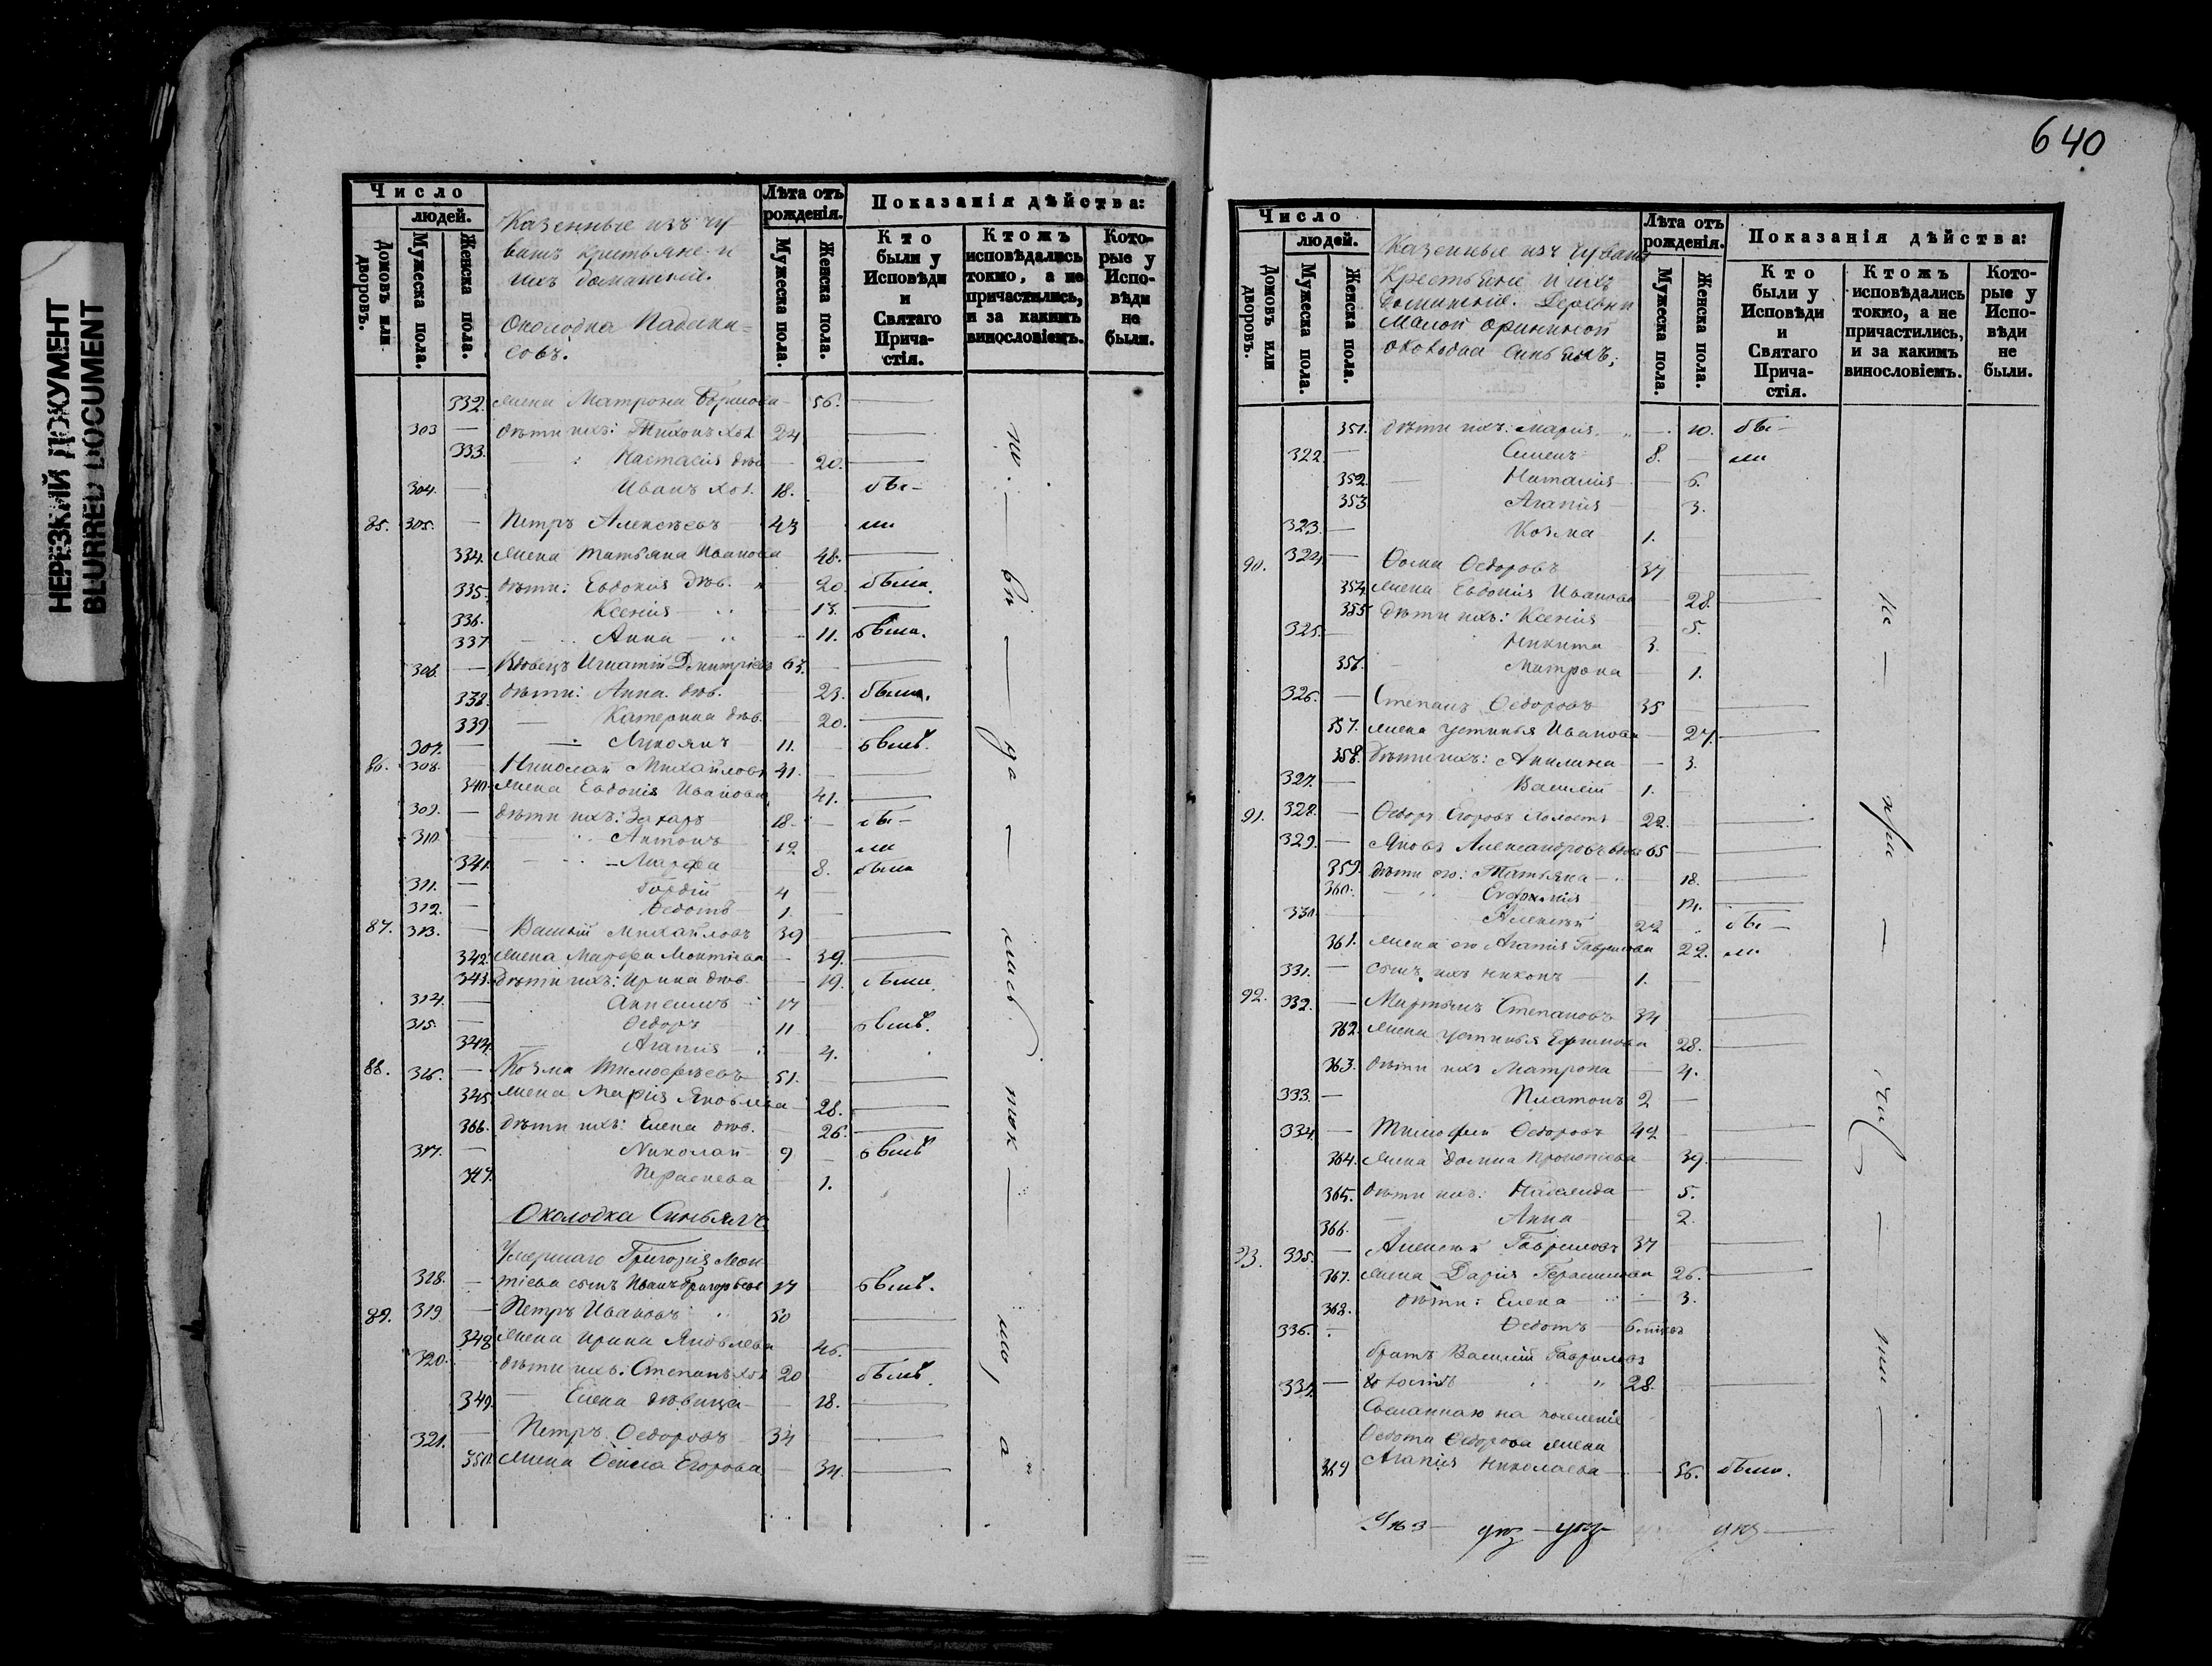 НЕРЕЗКИЙ ДОКУМЕНТ
BLURRED DOCUMENT
Число
людей.
Домовъ или дворовъ.
Мужеска пола.
Женска пола.
Казенные изъ чу
вашъ крестьяне и
ихъ домашніи.
Околодка
Лѣта отъ рожденія.
Мужеска пола.
Женска пола.
Показанія дѣйства:
Кто были у Исповѣди и Святаго Причастія.
Ктожъ исповѣдались токмо, а не причастились, и за какимъ винословіемъ.
Которые у Исповѣди не были.
332. жена Матрона — 56.
303 — дѣти ихъ: Тихонъ хол. 24
333. Настасія дѣв. — 20.
304. — Иванъ хол. 18. — бы-
85. 305. — Петръ Алексѣевъ 43 ли
334. жена Татьяна Иванова 48.
335. дѣти: Евдокія дѣв. 20. была.
336. Ксенія — 13.
337 Анна — 11. была.
306. — Вдовецъ Игнатій Дмитріевъ 63.
338. дѣти: Анна дѣв. 23. была.
339 — Катерина дѣв. — 20.
307. — Лукоянъ — 11. былъ.
86. 308. — Николай Михайловъ 41.
340. жена Евдокія Иванова 41.
309. — дѣти ихъ: Захаръ 18. — бы-
310. Антонъ 12 ли
341. Марфа 8. была
311. — Гордій 4 —
312. — Ѳедотъ 1. —
87. 313. — Василій Михайловъ 39
342. жена Марфа — 39.
343. Дѣти ихъ: Ирина дѣв. — 19. была.
314. — 17
315. — Ѳедоръ 11 былъ.
344. Агапія — 4.
88. 316. — Козма Тимоѳеевъ 51.
345. жена Марія Яковлева 28.
366. дѣти ихъ: Елена дѣв. — 26.
317. — Николай 9 — былъ
347. — 1.
Околодка Синьялъ
Умершаго Григорія Леон
318. — тіева сынъ Иванъ Григорьевъ 17 былъ.
89. 319 — Петръ Ивановъ 50
348 жена Ирина Яковлева 46.
320. дѣти ихъ: Степанъ хол 20 былъ.
349. — Елена дѣвица — 18.
321. — Петръ Ѳедоровъ 34
350. жена Егорова. — 34.
640
Число
людей.
Домовъ или дворовъ.
Мужеска пола.
Женска пола.
Казенные изъ чувашъ
Крестьяне и ихъ
домашніе. Деревни
Малой
околодка Синьялъ;
Лѣта отъ рожденія.
Мужеска пола.
Женска пола.
Показанія дѣйства:
Кто были у Исповѣди и Святаго Причастія.
Ктожъ исповѣдались токмо, а не причастились, и за какимъ винословіемъ.
Которые у Исповѣди не были.
351. дѣти ихъ: Марія. — 10. бы-
322. — Семенъ 8. — ли
352. — Наталія — 6.
353 Агапія — 3.
323. — Козма 1. —
90. 324. — Ѳома Ѳедоровъ 37
354. жена Евдокія Иванова — 28.
355. дѣти ихъ: Ксенія — 5.
325. — Никита 3. —
356. Матрона — 1.
326. — Степанъ Ѳедоровъ 35
357. жена Устинья Иванова — 27.
358. Дѣти ихъ: Акилина — 3.
327. — Василій 1. —
91. 328. — Ѳедоръ Егоровъ холостъ 22.
329. — Яковъ Александровъ вдовъ 65
359. дѣти его: Татьяна — 18.
360. — 14.
330. Алексѣй 22 бы-
361. жена его Агапія Гаврилова 22. ли
331. — сынъ ихъ Никонъ 1. —
92. 332. — Мартынъ Степановъ 34
362. жена Устинья Ефимова 28.
363. дѣти ихъ Матрона 4.
333. — Платонъ 2 —
334. — Тимофей Ѳедоровъ 42
364. жена Домна Прокопіева 39.
365. дѣти ихъ: Надежда — 5.
366. — Анна — 2.
93. 335. — Алексѣй Гавриловъ 37
367. жена Дарія Герасимова 26.
368. дѣти: Елена — 3.
336. Ѳедотъ — 6.
братъ Василій Гавриловъ
холостъ 28.
Сосланнаго на поселеніе
Ѳедота Ѳедорова жена
369 Агапія Николаева — 56. была.